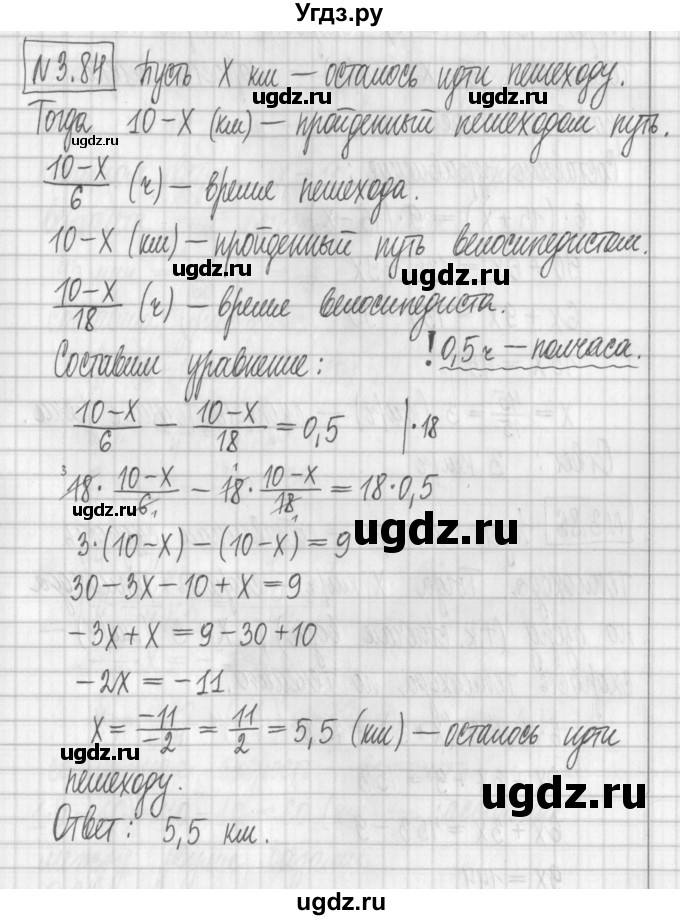 Угдз.ру
N3.84 Пусть X км – осталось идти пешеходу.
ugdz.ru ugdz.ru
Тогда 10–X (км) – пройденный пешеходом путь.
ugdz.ru
(10–X)/6 (ч) – время пешехода.
10–X (км) – пройденный путь велосипедистом.
ugdz.ru ugdz.ru
(10–X)/18 (ч) – время велосипедиста.
Составим уравнение: ! 0,5 ч – полчаса.
(10–X)/6 – (10–X)/18 = 0,5 |·18
3 18·(10–X)/6 1 – 1 18·(10–X)/18 1 = 18·0,5
ugdz.ru
3·(10–X) – (10–X) = 9
ugdz.ru
30–3X–10+X=9
–3X+X=9–30+10
–2X=–11
X = –11/–2 = 11/2 = 5,5 (км) – осталось идти
ugdz.ru
пешеходу.
ugdz.ru
Ответ: 5,5 км.
ugdz.ru
Угдз.ру